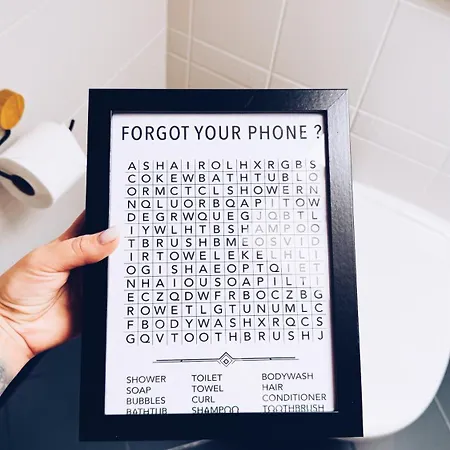 FORGOT YOUR PHONE ?
A S H A I R O L H X R G B S
C O K E W B A T H T U B L O
O R M C T C L S H O W E R N
N Q L U O R B Q A P I T O W
D E G R W Q U E G J Q B T L
I Y W L H T B S H A M P O O
T B R U S H B M E O S V I D
I R T O W E L E K E L H L I
O G I S H A E O P T Q I E T
N H A I O U S O A P I L T I
E C Z Q D W F R B O C Z B G
R O W E T L G T U N U M L C
F B O D Y W A S H X R Q C S
G Q V T O O T H B R U S H J
SHOWER TOILET BODYWASH
SOAP TOWEL HAIR
BUBBLES CURL CONDITIONER
BATHTUB SHAMPOO TOOTHBRUSH